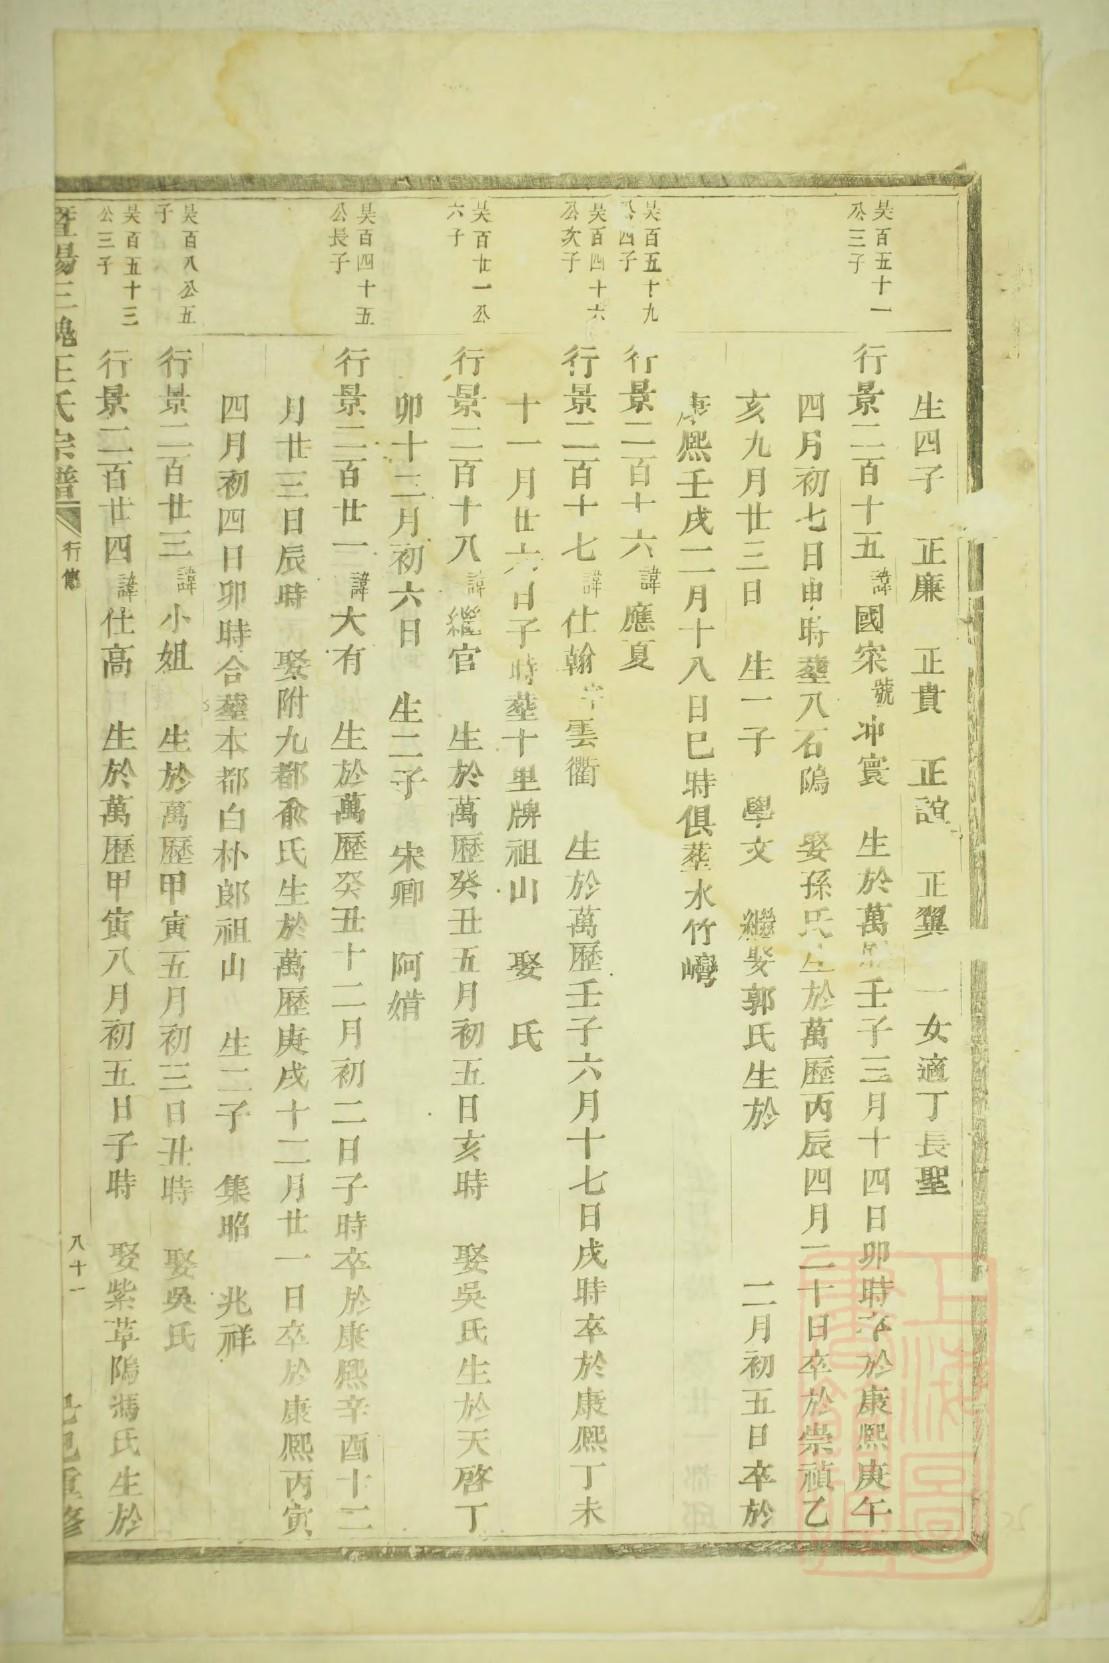 生四子 正廉 正貴 正誼 正翼 一女適丁長聖
昊百五十一
公三子
行景二百十五諱國寀號冲寰 生於萬壬子三月十四日卯時卒於康熙庚午
四月初七日申時塟八石隝 娶孫氏生於萬歷丙辰四月二十日卒於崇禎乙
亥九月廿三日 生一子 學文 繼娶郭氏生於 二月初五日卒於
康熙壬戌二月十八日巳時俱塟水竹𡾋
昊百五十九
公四子
行景二百十六諱應夏
昊百四十六
公次子
行景二百十七諱仕翰字雲衢 生於萬歷壬子六月十七日戌時卒於康熙丁未
十一月廿六日子時塟十里牌祖山 娶 氏
昊百廿一公
六子
行景二百十八諱繼官 生於萬歷癸丑五月初五日亥時 娶吳氏生於天啓丁
卯十二月初六日 生二子 宋卿 阿
昊百四十五
公長子
行景二百廿一諱大有 生於萬歷癸丑十二月初二日子時卒於康熙辛酉十二
月廿三日辰時 娶附九都俞氏生於萬歷庚戌十二月廿一日卒於康熙丙寅
四月初四日卯時合塟本都白朴郞祖山 生二子 集昭 兆祥
昊百八公五
子
行景二百廿三諱小姐 生於萬歷甲寅五月初三日丑時 娶吳氏
昊百五十三
公三子
行景二百廿四諱仕高 生於萬歷甲寅八月初五日子時 娶紫草隝馮氏生於
暨陽三槐王氏宗譜 行傳 八十一 重修
上海圖書館藏